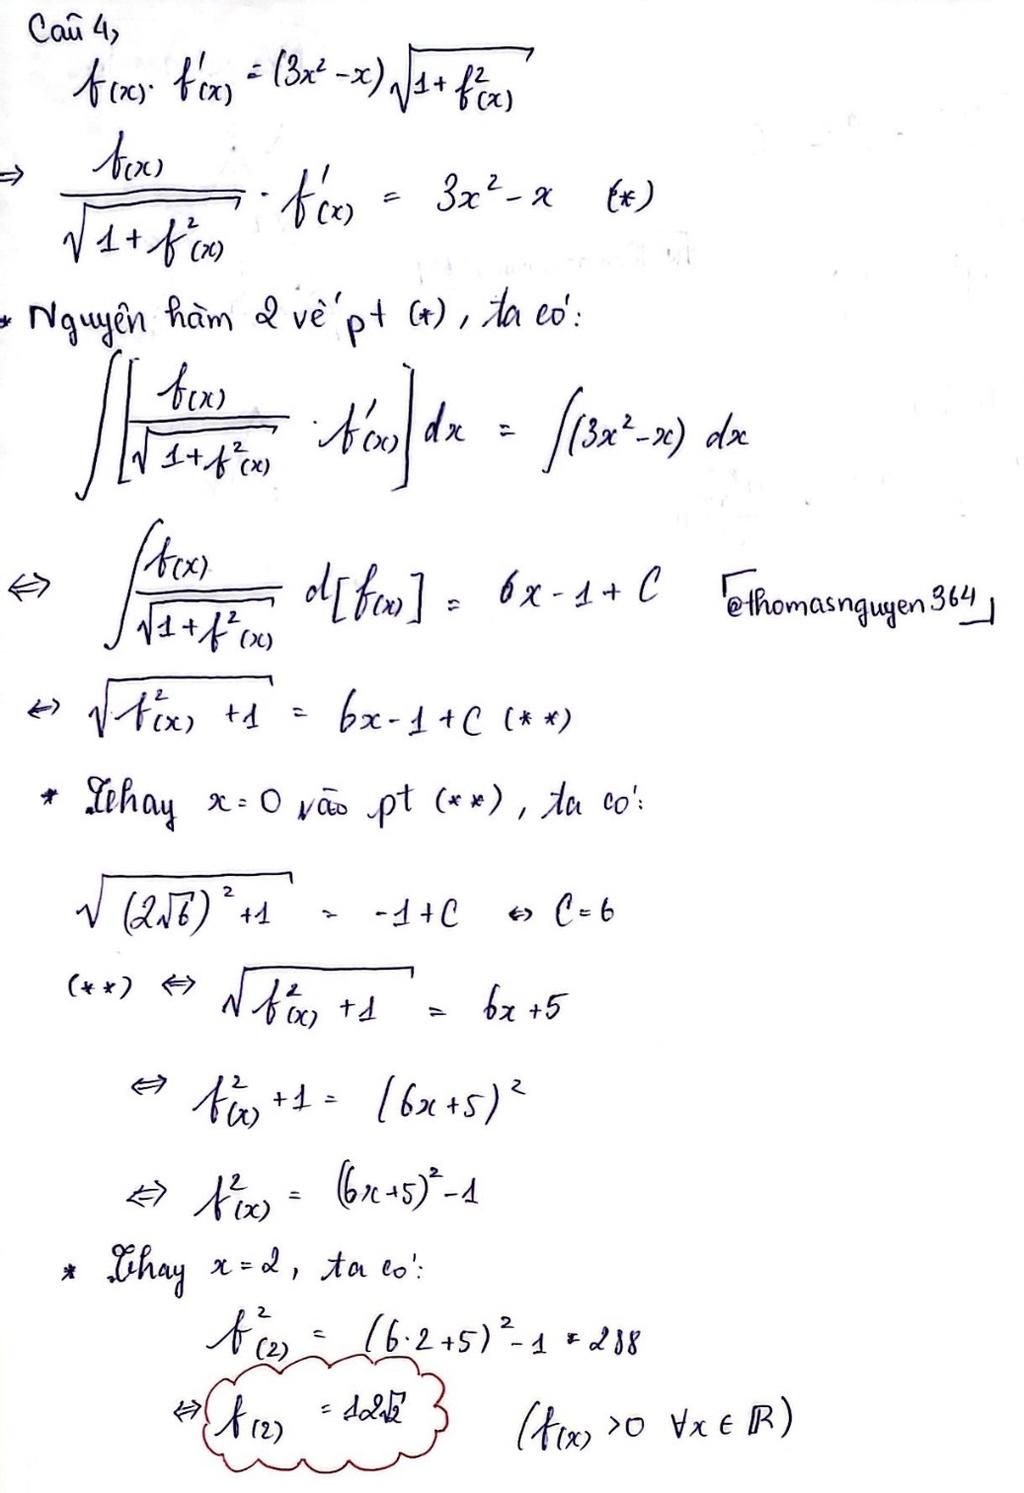 Câu 4,
f(x). f'(x) = (3x² - x) √(1 + f²(x))
⇒ f(x) / √(1 + f²(x)) · f'(x) = 3x² - x (*)
* Nguyên hàm 2 vế pt (*), ta có:
∫ [ f(x) / √(1 + f²(x)) · f'(x) ] dx = ∫(3x² - x) dx
⇔ ∫ f(x) / √(1 + f²(x)) d[f(x)] = 6x - 1 + C 「@thomasnguyen364」
⇔ √(f²(x) + 1) = 6x - 1 + C (**)
* Thay x = 0 vào pt (**), ta có:
√((2√6)² + 1) = -1 + C ⇔ C = 6
(**) ⇔ √(f²(x) + 1) = 6x + 5
⇔ f²(x) + 1 = (6x + 5)²
⇔ f²(x) = (6x + 5)² - 1
* Thay x = 2, ta có:
f²(2) = (6·2 + 5)² - 1 = 288
⇔ f(2) = 12√2 (f(x) > 0 ∀x ∈ ℝ)